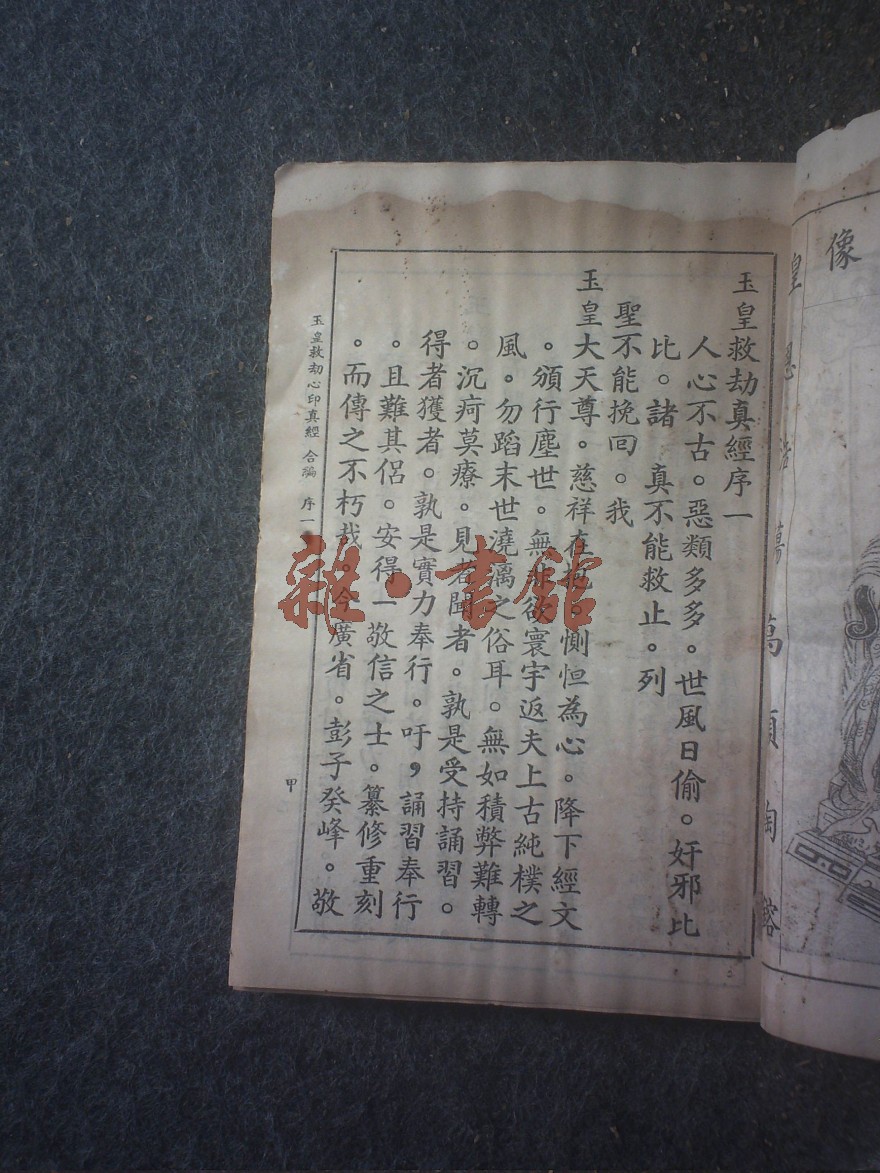 像
皇
萬
玉皇救劫真經序一
人心不古。惡類多多。世風日偷。奸邪比
比。諸 真不能救止。列
聖不能挽回。我
玉皇大天尊。慈祥在抱。惻怛為心。降下經文
。頒行塵世。無非欲寰宇返夫上古純樸之
風。勿蹈末世澆漓之俗耳。無如積弊難轉
。沉疴莫療。見者聞者。孰是受持誦習。
得者獲者。孰是實力奉行。吁，誦習奉行
。且難其侶。安得一敬信之士。纂修重刻
。而傳之不朽哉。今廣省。彭子癸峰。敬
玉皇救劫心印真經 合編 序一
甲
雜·書館